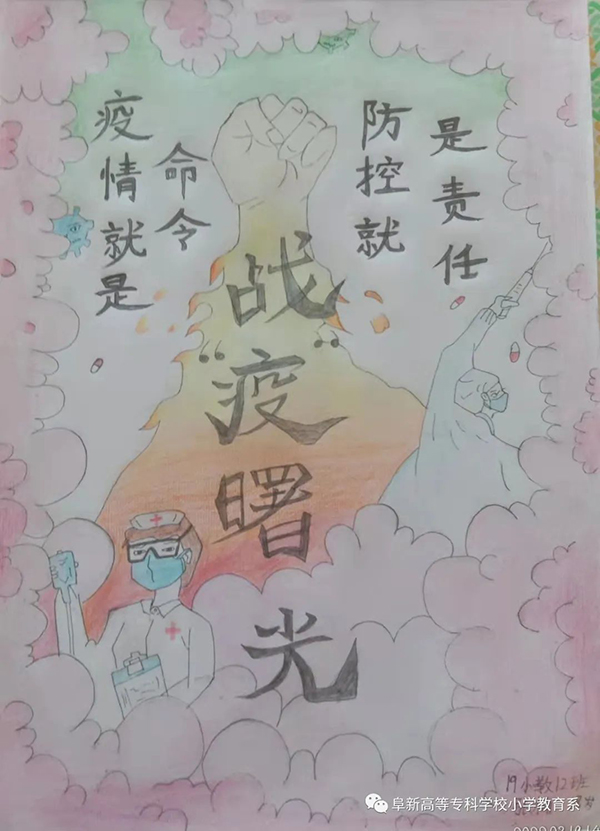 疫情就是
命令
防控就
是责任
战
“疫”
曙
光
19小教12班
阜新高等专科学校小学教育系